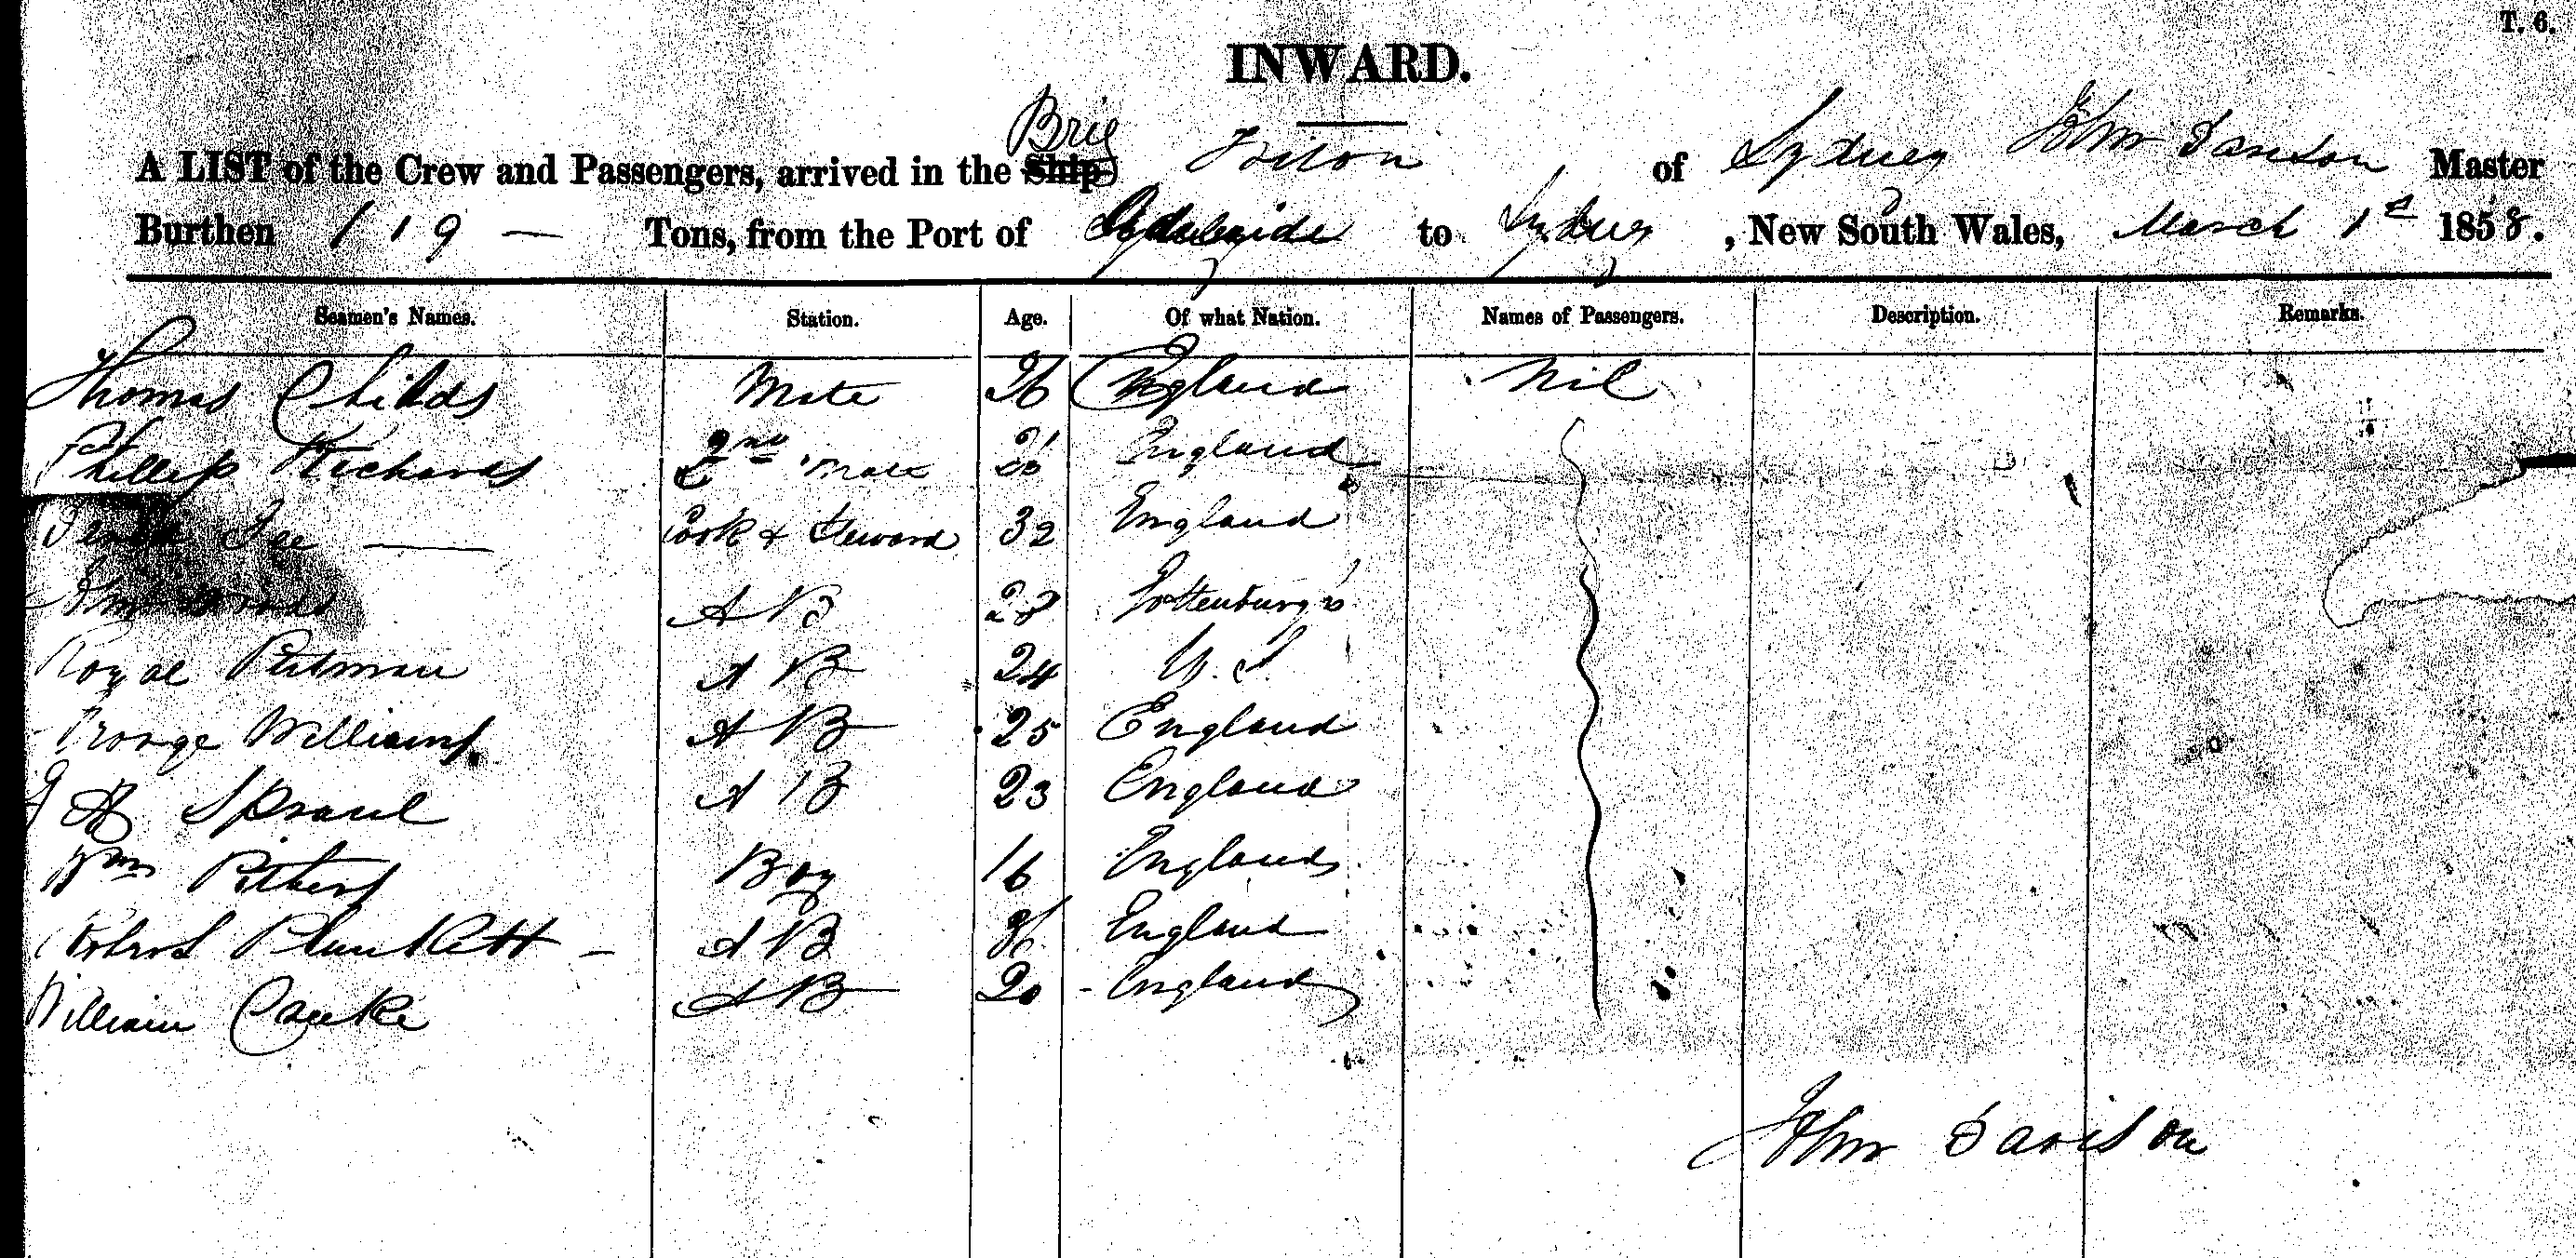 T. 6.
INWARD.
A LIST of the Crew and Passengers, arrived in the Ship Brig of Sydney John Davison Master
Burthen 119 — Tons, from the Port of Adelaide to Sydney, New South Wales, March 1st 1858.
Seamen's Names. Station. Age. Of what Nation. Names of Passengers. Description. Remarks.
Thomas Childs Mate 26 England Nil
Phillip Richards 2nd Mate England
Cook & Steward 32 England
A B 28 Gottenburg
Royal Putman A B 24 U. S.
George Williams A B 25 England
Sproul A B 23 England
Wm Pithers Boy 16 England
Robert Plunkett — A B England
William Cauke A B 20 England
John Davison